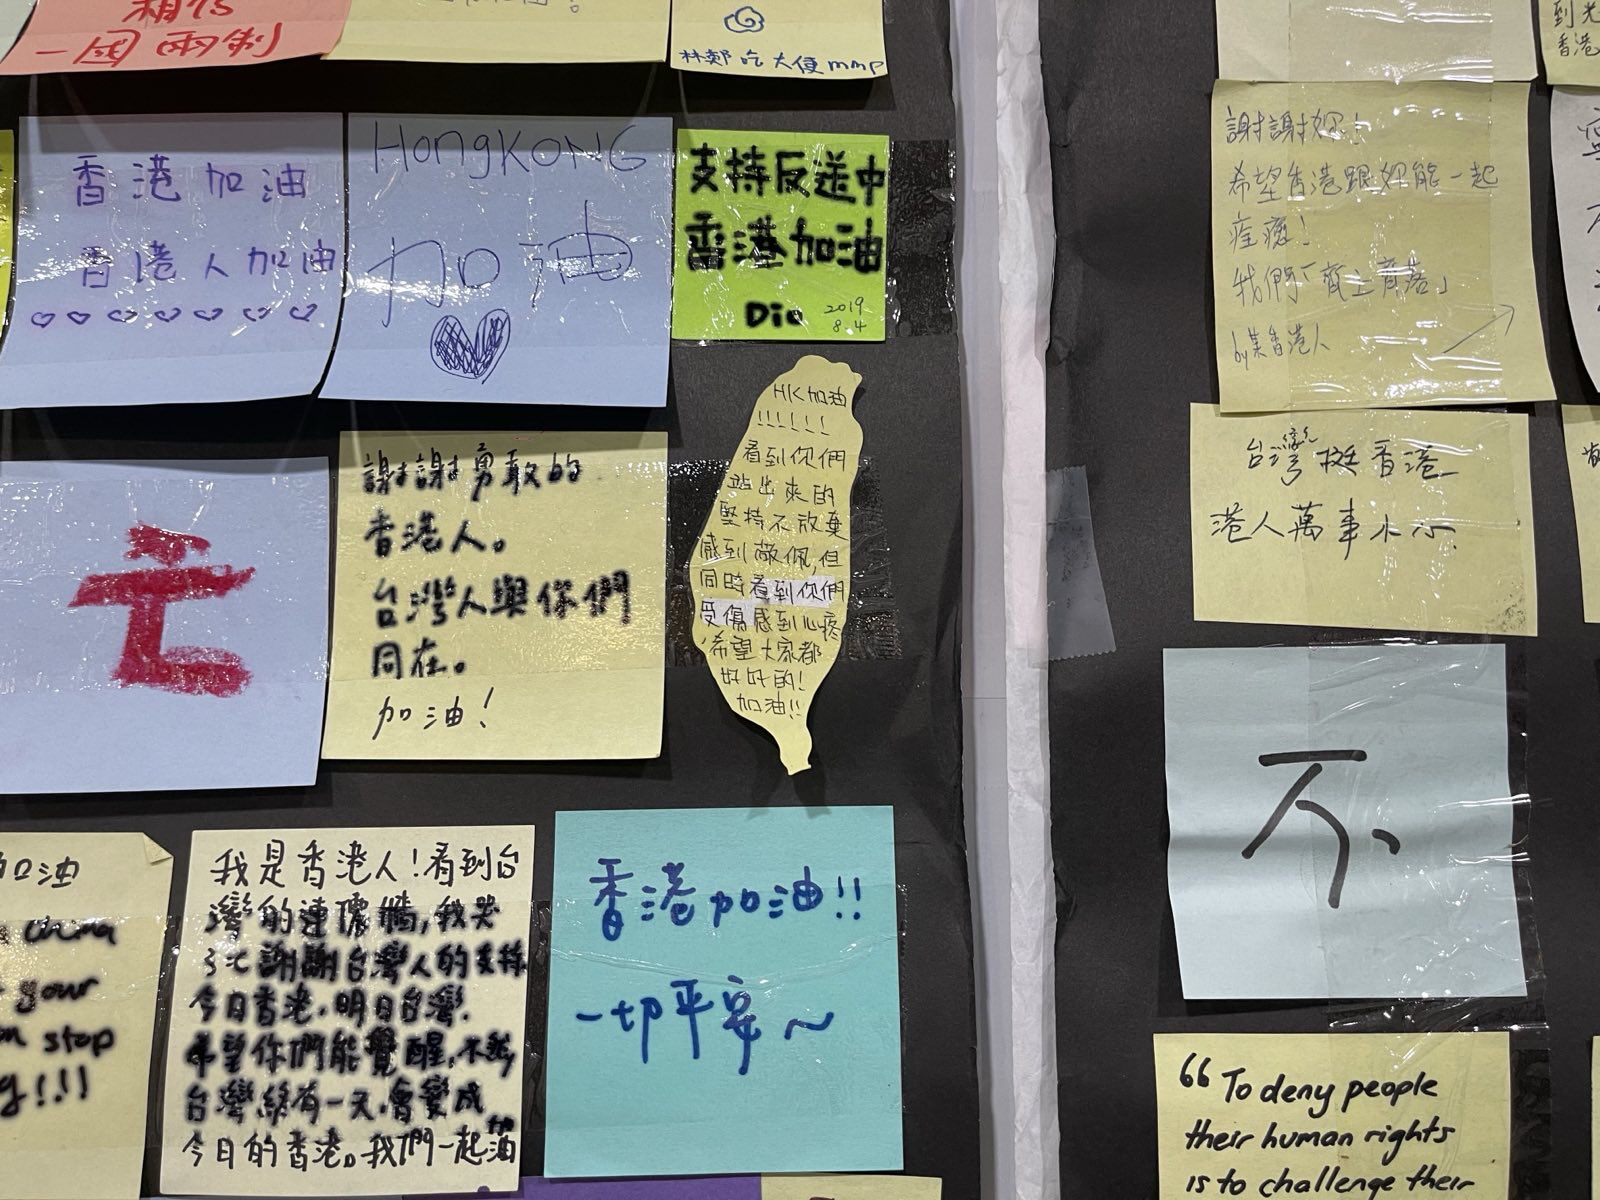 相信
一國兩制
林鄭吃大便mmp
香港加油
香港人加油
HongKONG
加油
支持反送中
香港加油
Dio
2019
8.4
HK加油
!!!!!!
看到你們
站出來的
堅持不放棄
感到敬佩,但
同時看到你們
受傷感到心疼
希望大家都
好好的!
加油!!
謝謝勇敢的
香港人。
台灣人與你們
同在。
加油!
亡
加油
china
your
stop
!!!
我是香港人!看到台
灣的連儂牆,我哭
了:( 謝謝台灣人的支持
今日香港,明日台灣.
希望你們能覺醒,不然
台灣總有一天,會變成
今日的香港。我們一起加油
香港加油!!
一切平安~
到光
香港
謝謝妳!
希望香港跟妳能一起
痊癒!
我們「齊上齊落」
by某香港人
台灣挺香港
港人萬事小心
不
“To deny people
their human rights
is to challenge their